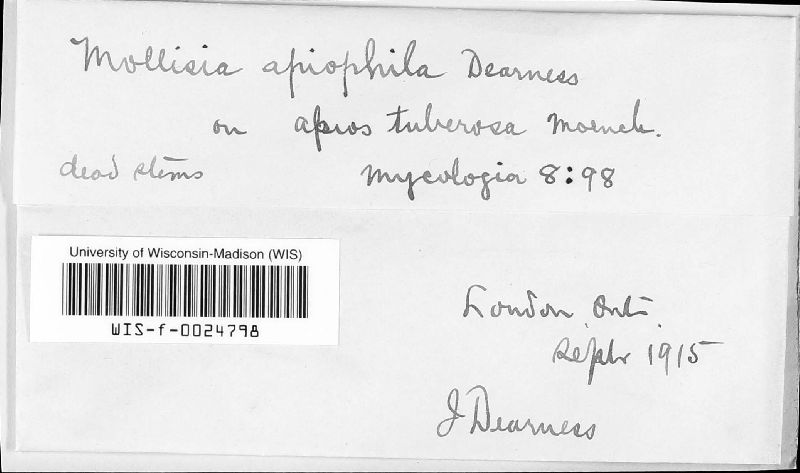 Mollisia apiophila Dearness
on apios tuberosa Moench.
dead stems
Mycologia 8:98
University of Wisconsin-Madison (WIS)
WIS-f-0024798
London, Ont.
Septr 1915
J Dearness